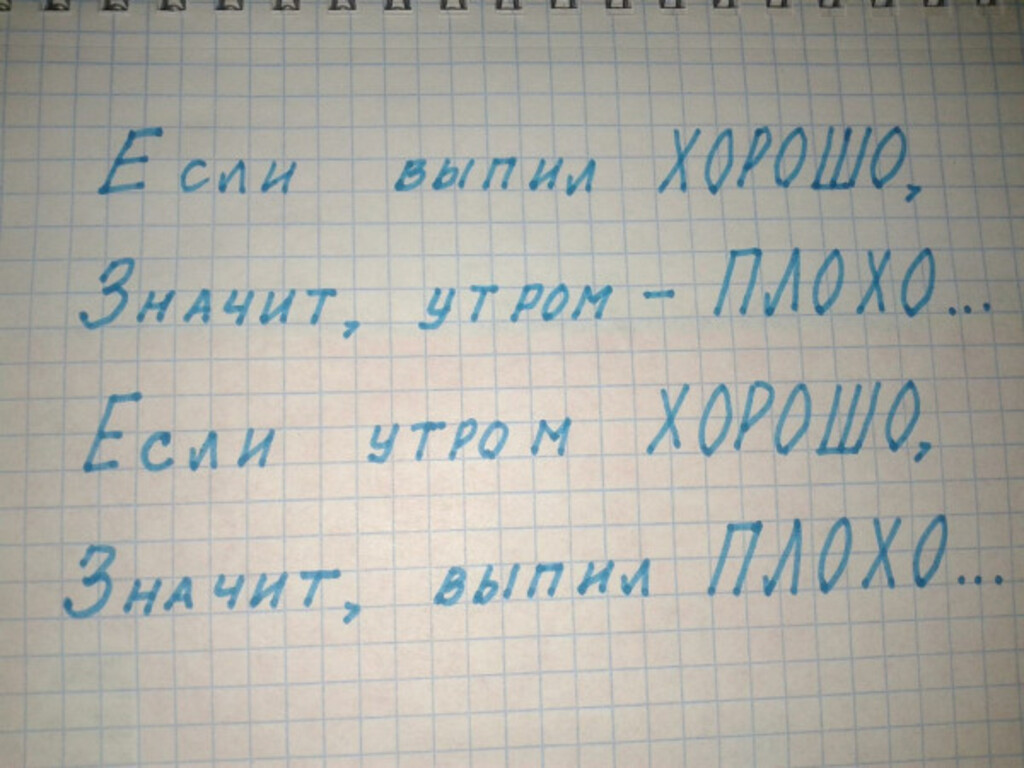 Если выпил ХОРОШО,
Значит, утром - ПЛОХО...
Если утром ХОРОШО,
Значит, выпил ПЛОХО...